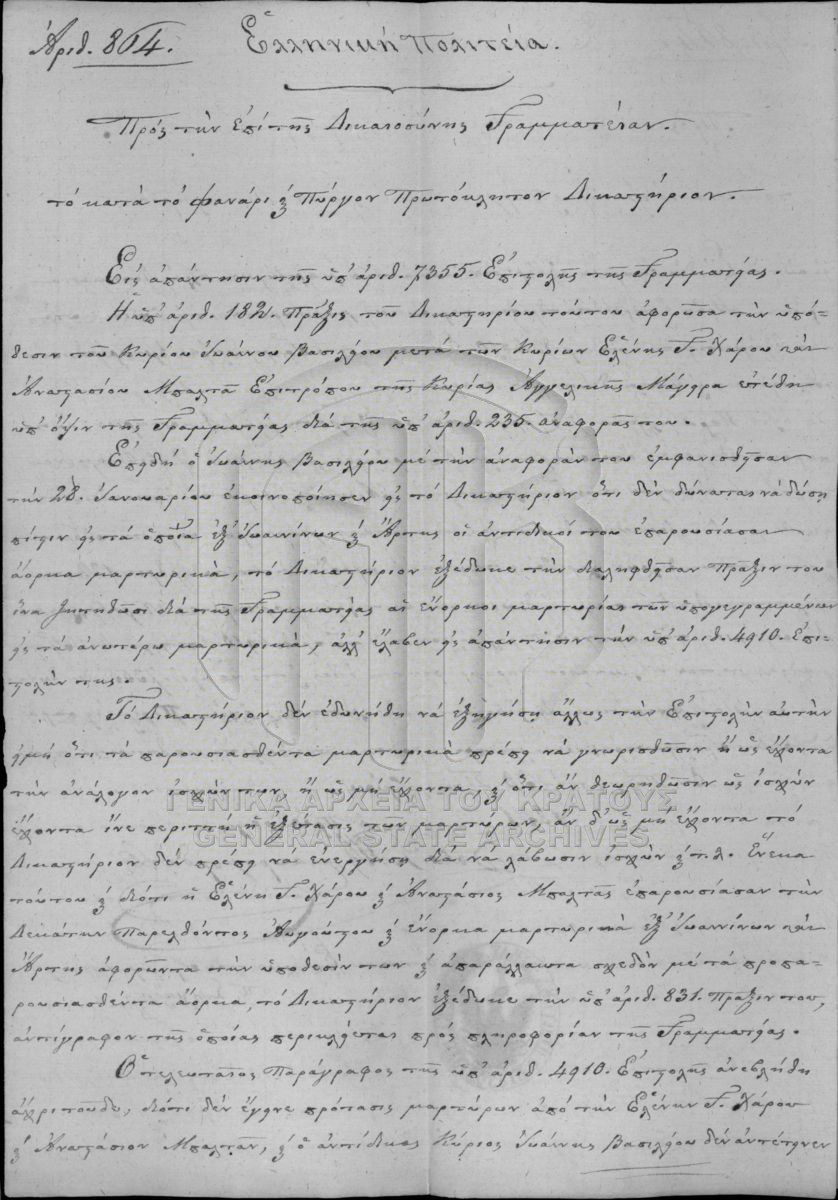 Ἀριθ. 864.
Ἑλληνική Πολιτεία.
Πρός τήν ἐπί τῆς Δικαιοσύνης Γραμματείαν.
τό κατά τό Φανάρι ϗ Πύργον Πρωτόκλητον Δικαστήριον.
Εἰς ἀπάντησιν τῆς ὑπ' ἀριθ. 7355. Ἐπιστολῆς τῆς Γραμματείας.
Ἡ ὑπ' ἀριθ. 182. Πρᾶξις τοῦ Δικαστηρίου τούτου ἀφορῶσα τήν ὑπό-
θεσιν τοῦ Κυρίου Ἰωάννου Βασιλείου μετά τῶν Κυρίων Ἑλένης Γ. Χάρου καί
Ἀναστασίου Μπαλτᾶ Ἐπιτρόπου τῆς Κυρίας Ἀγγελικῆς Μάγγρα ἐτέθη
ὑπ' ὄψιν τῆς Γραμματείας διά τῆς ὑπ' ἀριθ. 235. ἀναφορᾶς του.
Ἐπειδή ὁ Ἰωάννης Βασιλείου μέ τήν ἀναφοράν του ἐμφανισθεῖσαν
τήν 28. Ἰανουαρίου ἐκοινοποίησεν εἰς τό Δικαστήριον ὅτι δέν δύναται νά δώσῃ
πίστιν εἰς τά ὁποῖα ἐξ Ἰωαννίνων ϗ Ἄρτης οἱ ἀντίδικοί του ἐπαρουσίασαν
ἄορκα μαρτυρικά, τό Δικαστήριον ἐξέδωκε τήν διαληφθεῖσαν Πρᾶξιν του
ἵνα ζητηθῶσι διά τῆς Γραμματείας αἱ ἔνορκοι μαρτυρίαι τῶν ὑπογεγραμμένων
εἰς τά ἀνωτέρω μαρτυρικά, ἀλλ' ἔλαβεν εἰς ἀπάντησιν τήν ὑπ' ἀριθ. 4910. Ἐπι-
στολήν της.
Τό Δικαστήριον δέν ἐδυνήθη νά ἐξηγήσῃ ἄλλως τήν Ἐπιστολήν αὐτήν
εἰμή ὅτι τά παρουσιασθέντα μαρτυρικά πρέπει νά γνωρισθῶσιν ἤ ὡς ἔχοντα
τήν ἀνάλογον ἰσχύν των, ἤ ὡς μή ἔχοντα, ϗ ὅτι ἄν θεωρηθῶσιν ὡς ἰσχύν
ἔχοντα εἶνε περιττή ἡ ἐξέτασις τῶν μαρτύρων, ἄν δ' ὡς μή ἔχοντα τό
Δικαστήριον δέν πρέπει νά ἐνεργήσῃ διά νά λάβωσιν ἰσχύν ϗ τ.λ. Ἕνεκα
τούτου ϗ διότι ἡ Ἑλένη Γ. Χάρου ϗ Ἀναστάσιος Μπαλτᾶς ἐπαρουσίασαν τήν
Δεκάτην Παρελθόντος Αὐγούστου ϗ ἔνορκα μαρτυρικά ἐξ Ἰωαννίνων καί
Ἄρτης ἀφορῶντα τήν ὑπόθεσίν των ϗ ἀπαράλλακτα σχεδόν μέ τά προπα-
ρουσιασθέντα ἄορκα, τό Δικαστήριον ἐξέδωκε τήν ὑπ' ἀριθ. 831. Πρᾶξιν του,
ἀντίγραφον τῆς ὁποίας περικλείεται πρός πληροφορίαν τῆς Γραμματείας.
Ὁ τελευταῖος Παράγραφος τῆς ὑπ' ἀριθ. 4910. Ἐπιστολῆς ἀνεβλήθη
ἄχρι τοῦδε, διότι δέν ἔγεινε πρότασις μαρτύρων ἀπό τήν Ἑλένην Γ. Χάρου
ϗ Ἀναστάσιον Μπαλτᾶν, ϗ ὁ ἀντίδικος Κύριος Ἰωάννης Βασιλείου δέν ἀντέτεινεν
ΓΕΝΙΚΑ ΑΡΧΕΙΑ ΤΟΥ ΚΡΑΤΟΥΣ
GENERAL STATE ARCHIVES